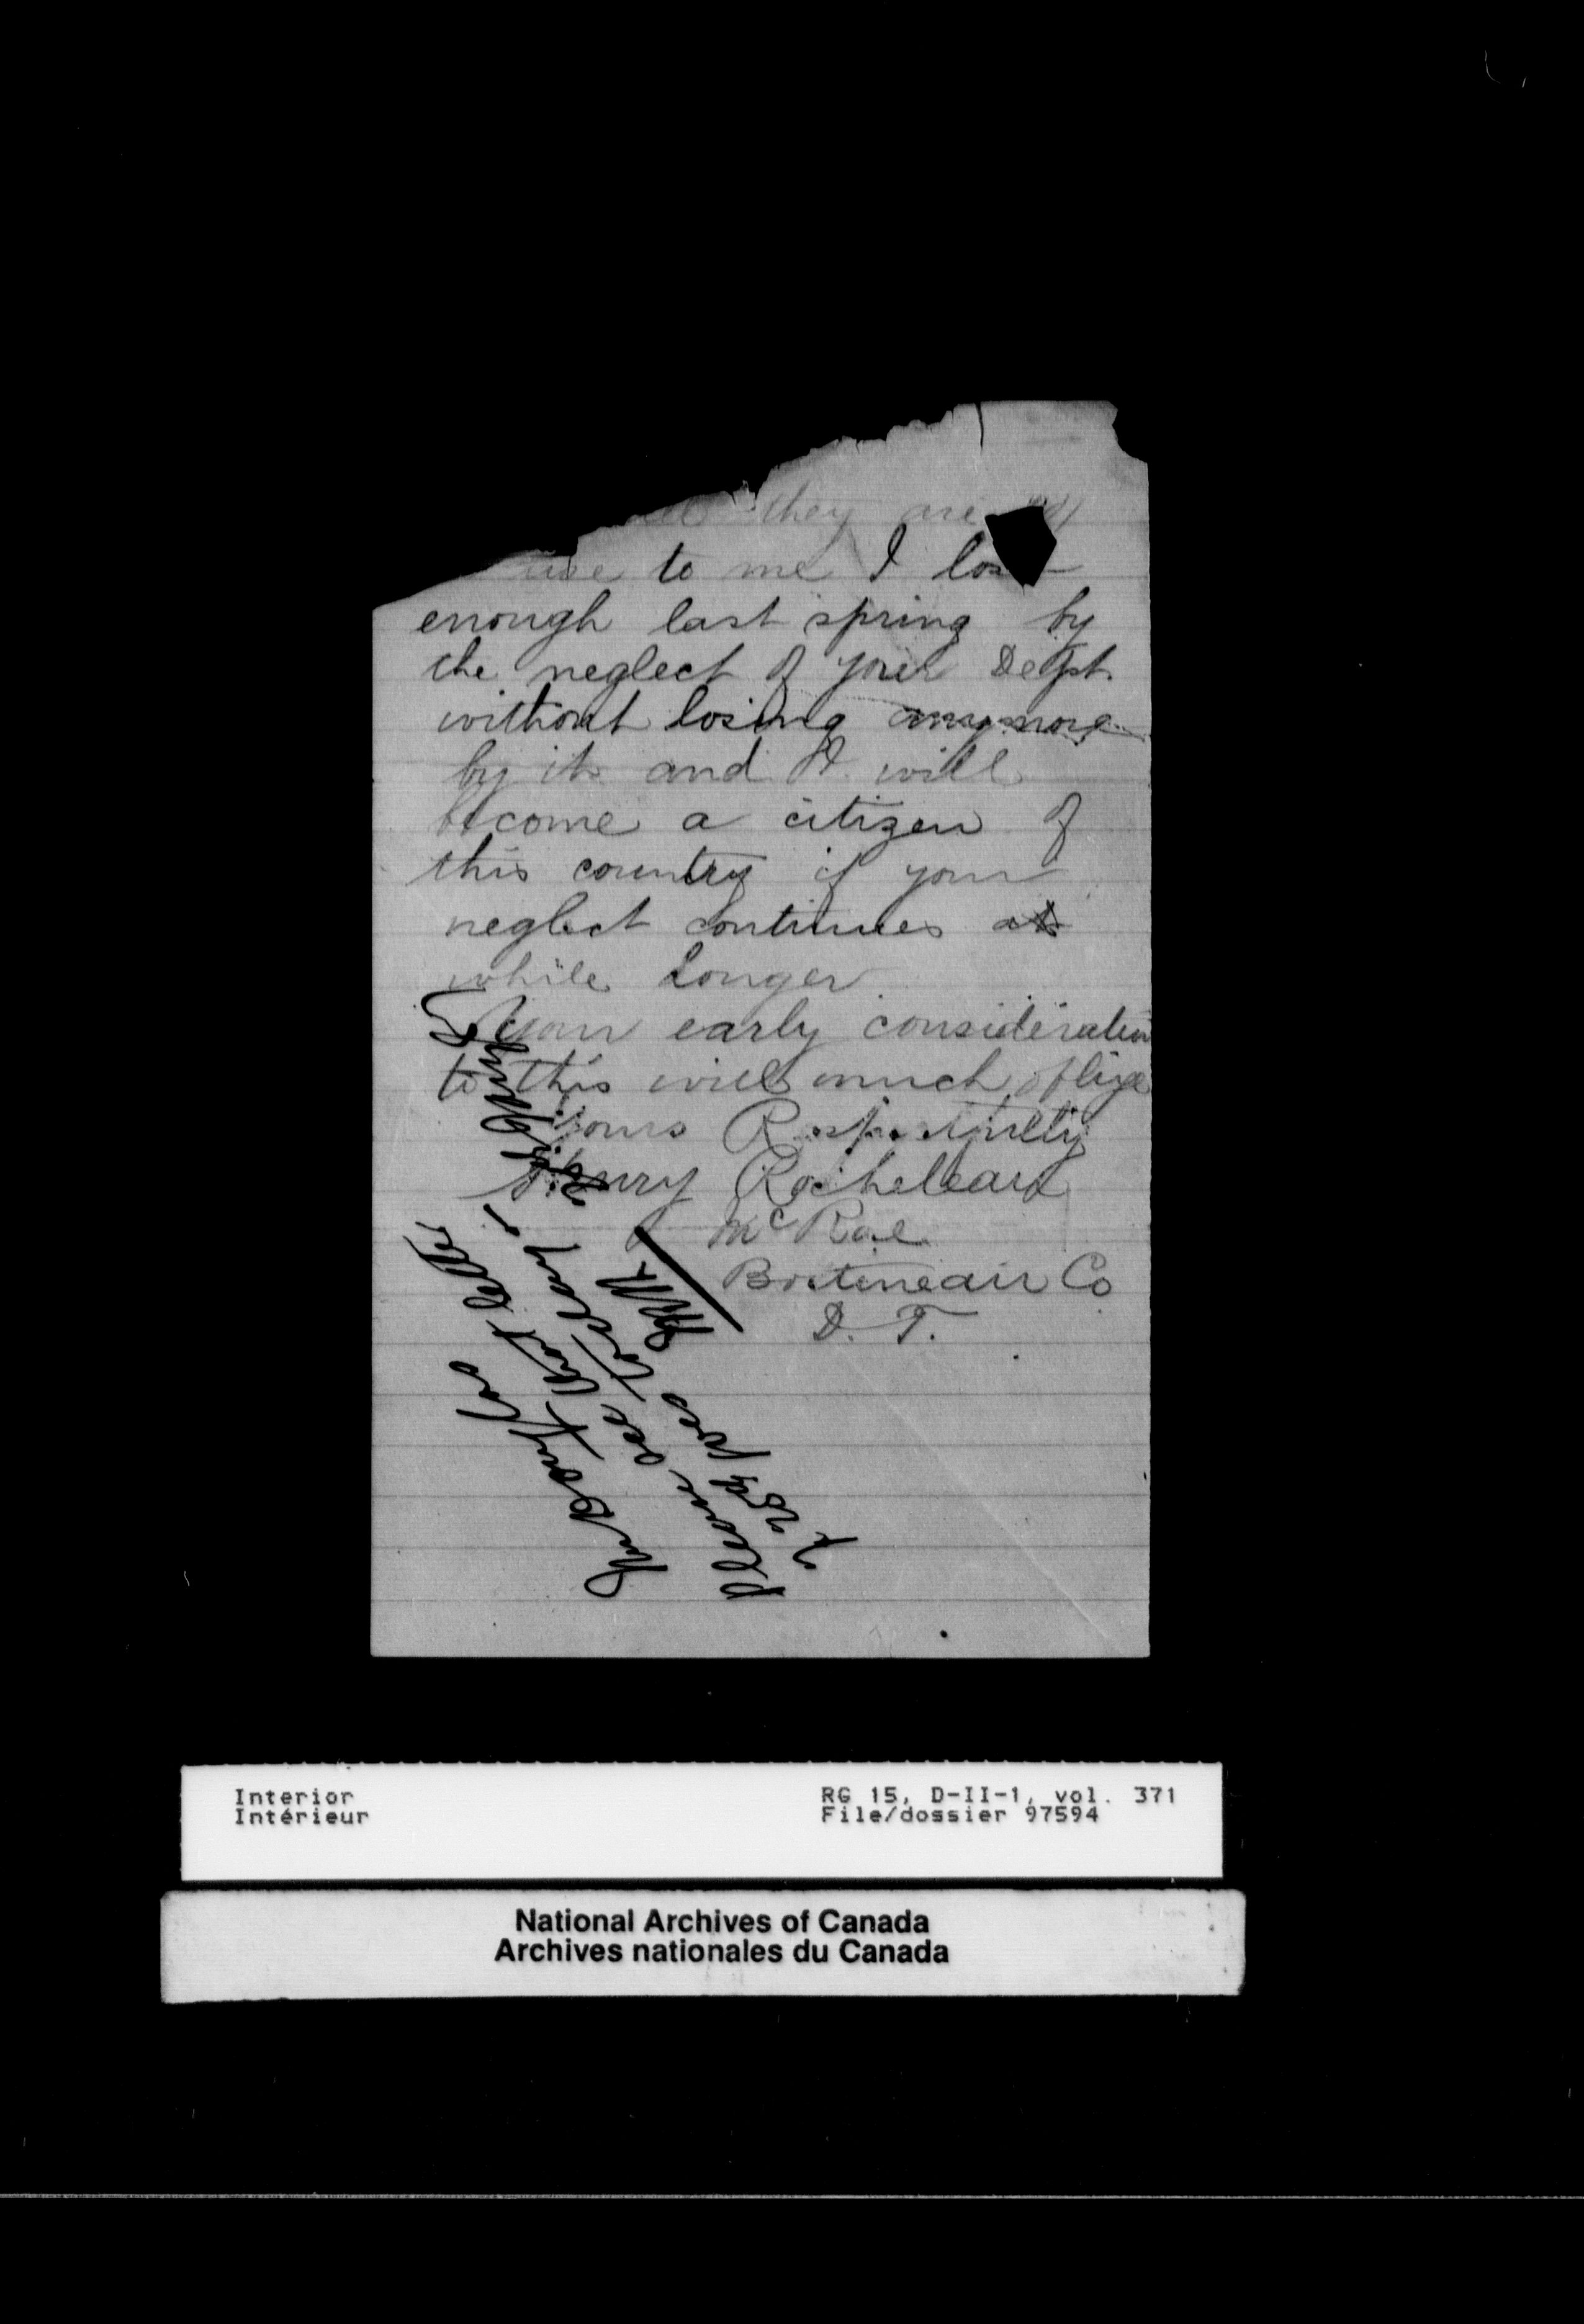 they are
use to me I lost
enough last spring by
the neglect of your Dept.
without losing anymore
by it and I will
become a citizen of
this country if your
neglect continues a
while longer
Your early consideration
to this will much oblige
Yours Respectfully
Henry Rocheleau
McRae
Bottineau Co
D. T.
Mr Douglas
Please see that letter
goes today
Interior
Intérieur
RG 15, D-II-1, vol. 371
File/dossier 97594
National Archives of Canada
Archives nationales du Canada